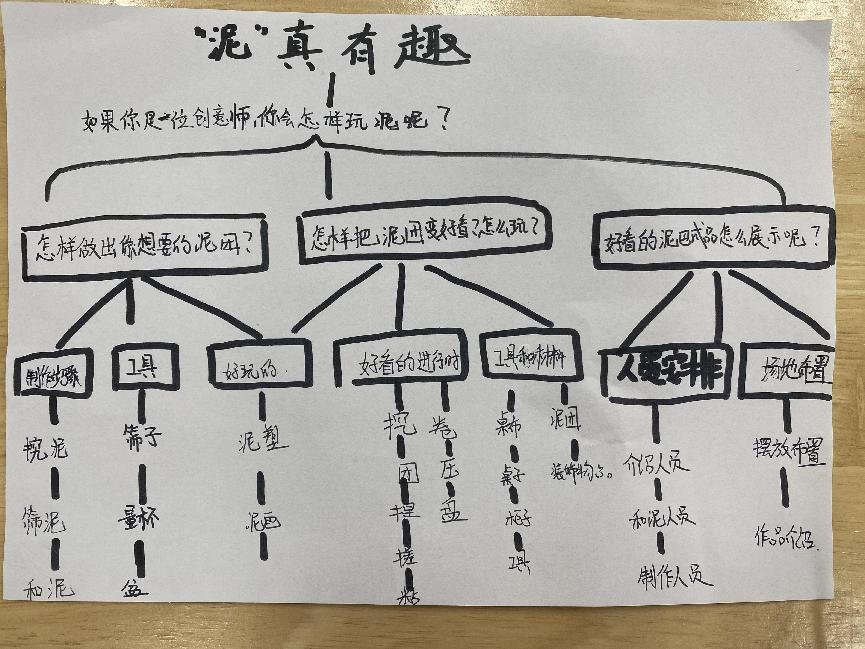 "泥"真有趣
如果你是一位创意师,你会怎样玩泥呢？
怎样做出你想要的泥团？
怎样把泥团变好看？怎么玩？
好看的泥巴成品怎么展示呢？
制作步骤
工具
好玩的.
好看的进行时
工具和材料
人员安排
场地布置
挖泥
筛泥
和泥
筛子
量杯
盆
泥塑
泥画
挖
团
捏
搓
粘
卷
压
盘
桌布
桌子
瓶子
工具
泥团
装饰物品。
介绍人员
和泥人员
制作人员
摆放布置
作品介绍.